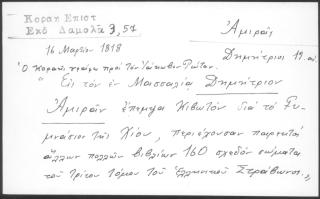 Κοραῆ Ἐπιστ
Ἐκδ Δαμαλᾶ 3, 57
Ἀμιραῆς
Δημήτριος 19. αἰ.
16 Μαρτίου 1818
Ὁ Κοραῆς γράφει πρὸς τὸν Ἰάκωβον Ρώταν.
" Εἰς τὸν ἐν Μασσαλίᾳ Δημήτριον
Ἀμιραῆν ἔπεμψα Κιβωτὸν διὰ τὸ Γυ-
μνάσιον τῆς Χίου, περιέχουσαν παρεκτὸς
ἄλλων πολλῶν βιβλίων 160 σχεδὸν σώματα
τοῦ τρίτου τόμου τοῦ Ἑλληνικοῦ Στράβωνος "